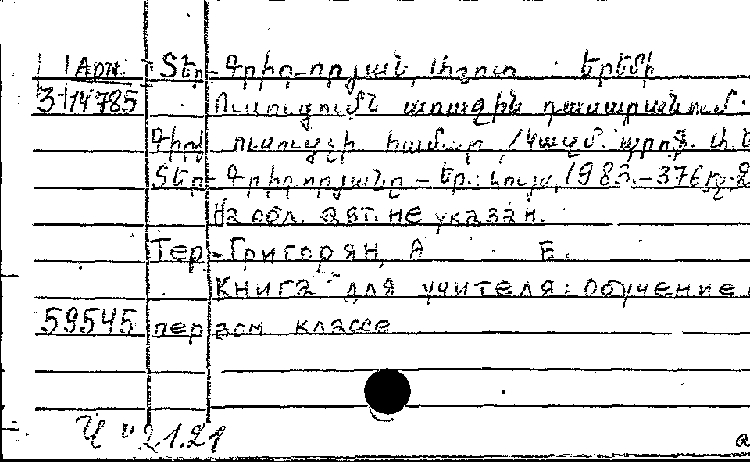 Арм. Տեր-Գրիգորյան, Աշոտ Երեմի
3-14785 Ուսուցումն առաջին դասարանում.
Գիրք ուսուցչի համար /Կազմ. պրոֆ. Ա. Ե.
Տեր-Գրիգորյանը – Եր.: Լույս, 1983. – 376 էջ.
На обл. авт. не указан.
Тер-Григорян, А Е.
Книга для учителя: обучение
59545 первом классе
21.21